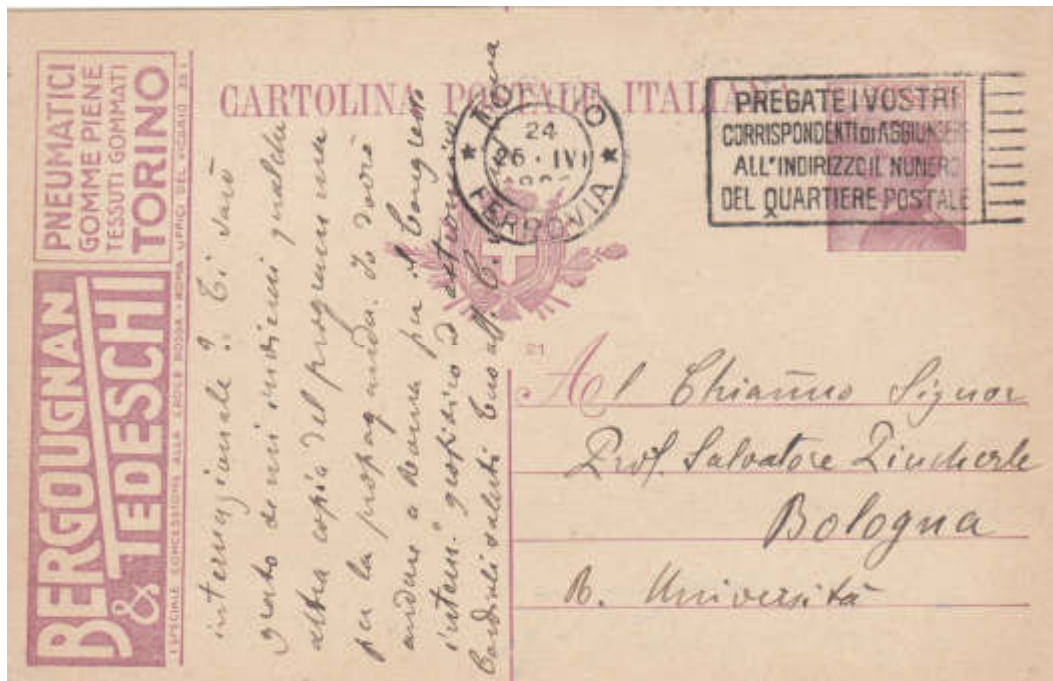 CARTOLINA POSTALE ITALIANA
BERGOUGNAN
& TEDESCHI
PNEUMATICI
GOMME PIENE
TESSUTI GOMMATI
TORINO
ESPECIALE CONCESSIONE ALLA CROCE ROSSA - ROMA UFFICI DEL VICARIO
FERROVIA
24
26 · IV
PREGATE I VOSTRI
CORRISPONDENTI DI AGGIUNGERE
ALL'INDIRIZZO IL NUMERO
DEL QUARTIERE POSTALE
internazionale? Ti sarò
grato se mi invierai qualche
altra copia del programma
per la propaganda. Io dovrò
andare a Roma per il Congresso
intern. geofisico
Cordiali saluti
21
Al Chiarmo Signor
Prof. Salvatore Pincherle
Bologna
R. Università